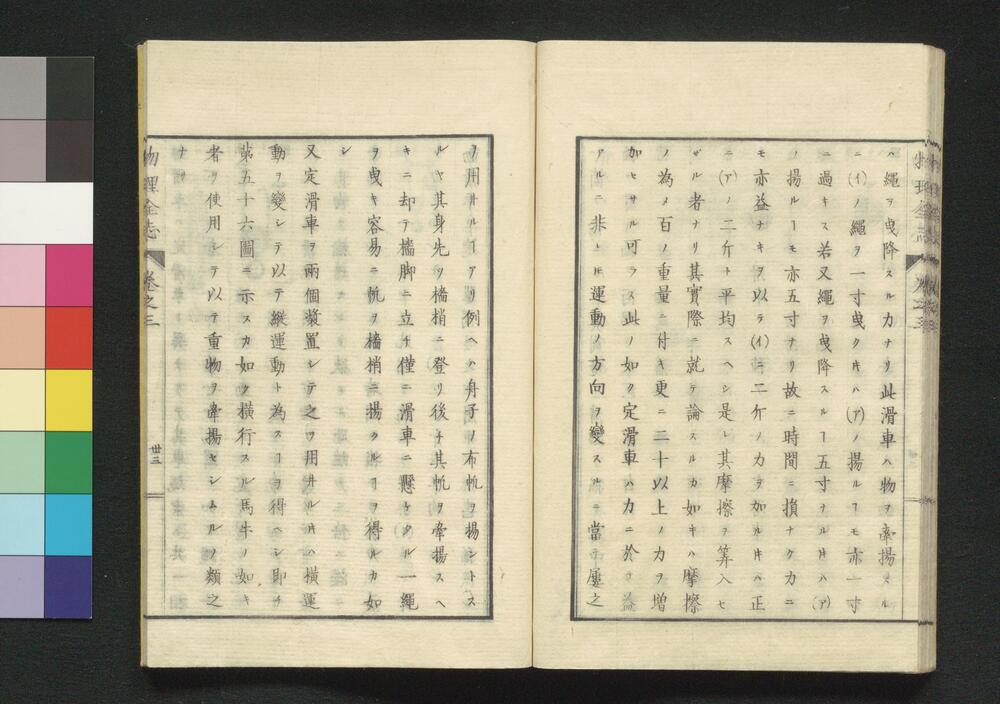 ハ繩ヲ曳降スルカナリ此滑車ハ物ヲ牽揚スル
ニ(イ)ノ繩ヲ一寸曳クヰハ(ア)ノ揚ルヿモ亦一寸
ニ過キス若又繩ヲ曳降スルヿ五寸ナルヰハ(ア)
ノ揚ルヿモ亦五寸ナリ故ニ時間ニ損ナク力ニ
モ亦益ナキヲ以テ(イ)ニ二斤ノ力ヲ加ルヰハ正
ニ(ア)ノ二斤ト平均スヘシ是レ其摩擦ヲ算入セ
ザル者ナリ其實際ニ就テ論スルカ如キハ摩擦
ノ為メ百ノ重量ニ付キ更ニ二十以上ノ力ヲ増
加セサル可ラス此ノ如ク定滑車ハ力ニ於テ益
アルニ非ト𪜈運動ノ方向ヲ變スルニ當テ屢之
ヲ用井ルヿアリ例ヘハ舟子ノ布帆ヲ揚ントス
ルヤ其身先ツ檣梢ニ登リ後チ其帆ヲ牽揚スヘ
キニ却テ檣脚ニ立チ僅ニ滑車ニ懸ケタル一繩
ヲ曳キ容易ニ帆ヲ檣梢ニ揚クルヿヲ得ルカ如
シ
又定滑車ヲ兩個裝置シテ之ヲ用井ルヰハ横運
動ヲ變シテ以テ縱運動ト為スヿヲ得ヘシ即チ
第五十六圖ニ示スカ如ク横行スル馬牛ノ如キ
者ヲ使用シテ以テ重物ヲ牽揚セシムルノ類之
ナリ
物理全志 卷之三 卅三